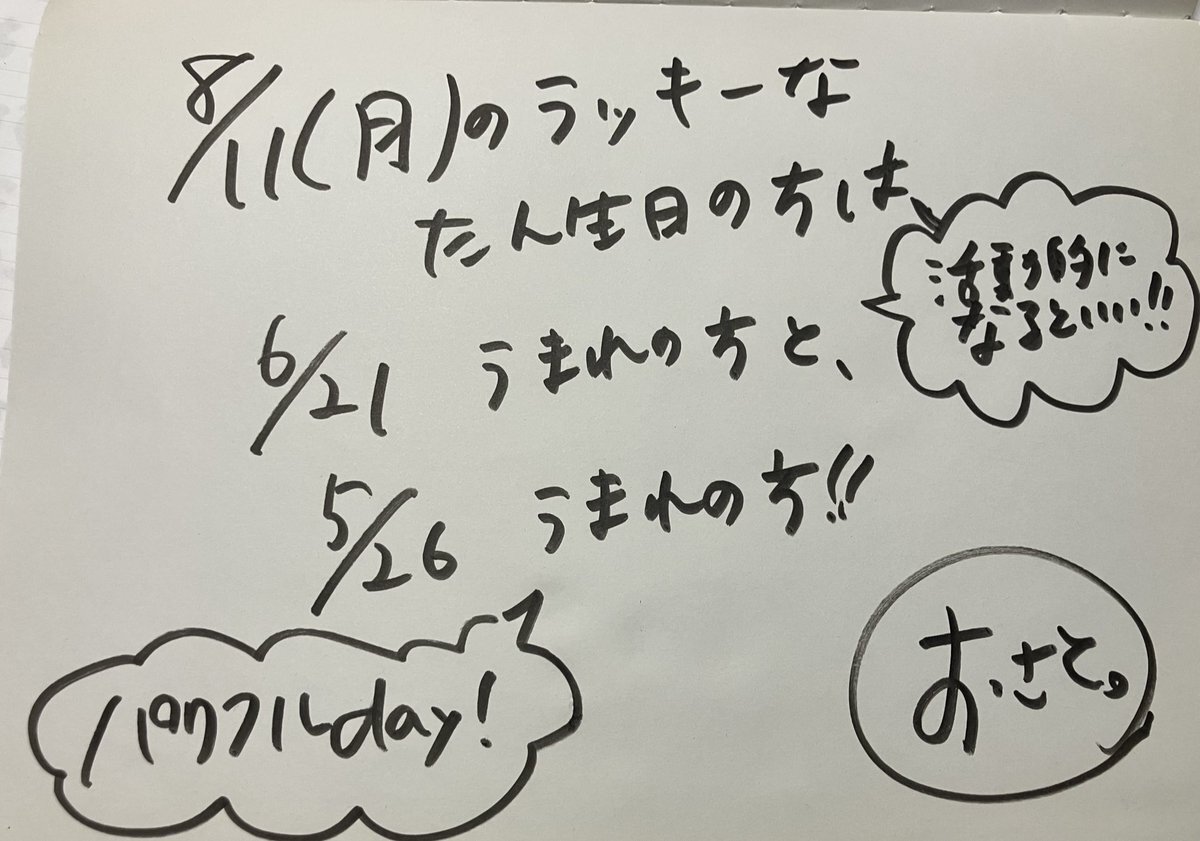 8/11(月)のラッキーな
たん生日の方は
活動的に
なるといい!!
6/21 うまれの方と、
5/26 うまれの方!!
パワフルday!
おさと。